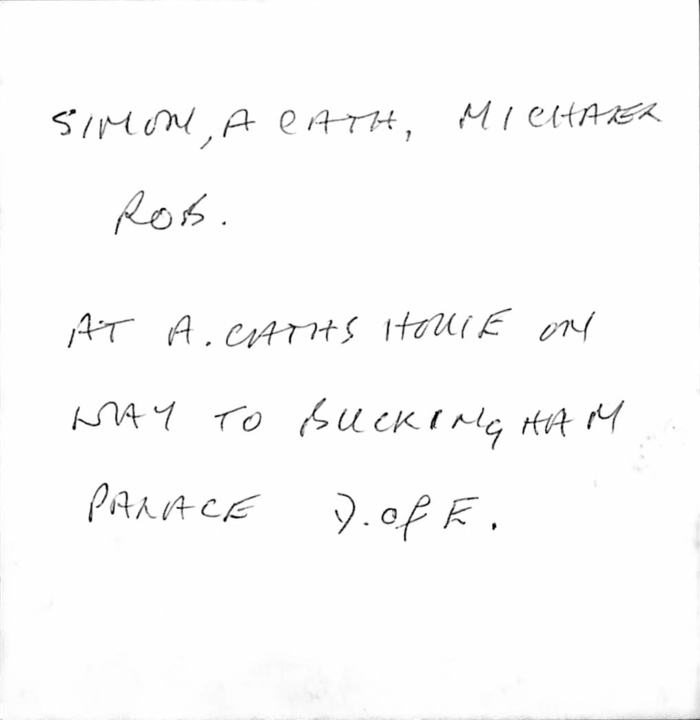 SIMON, A CATH, MICHAEL
ROB.
AT A. CATHS HOUSE ON
WAY TO BUCKINGHAM
PALACE D. of E.